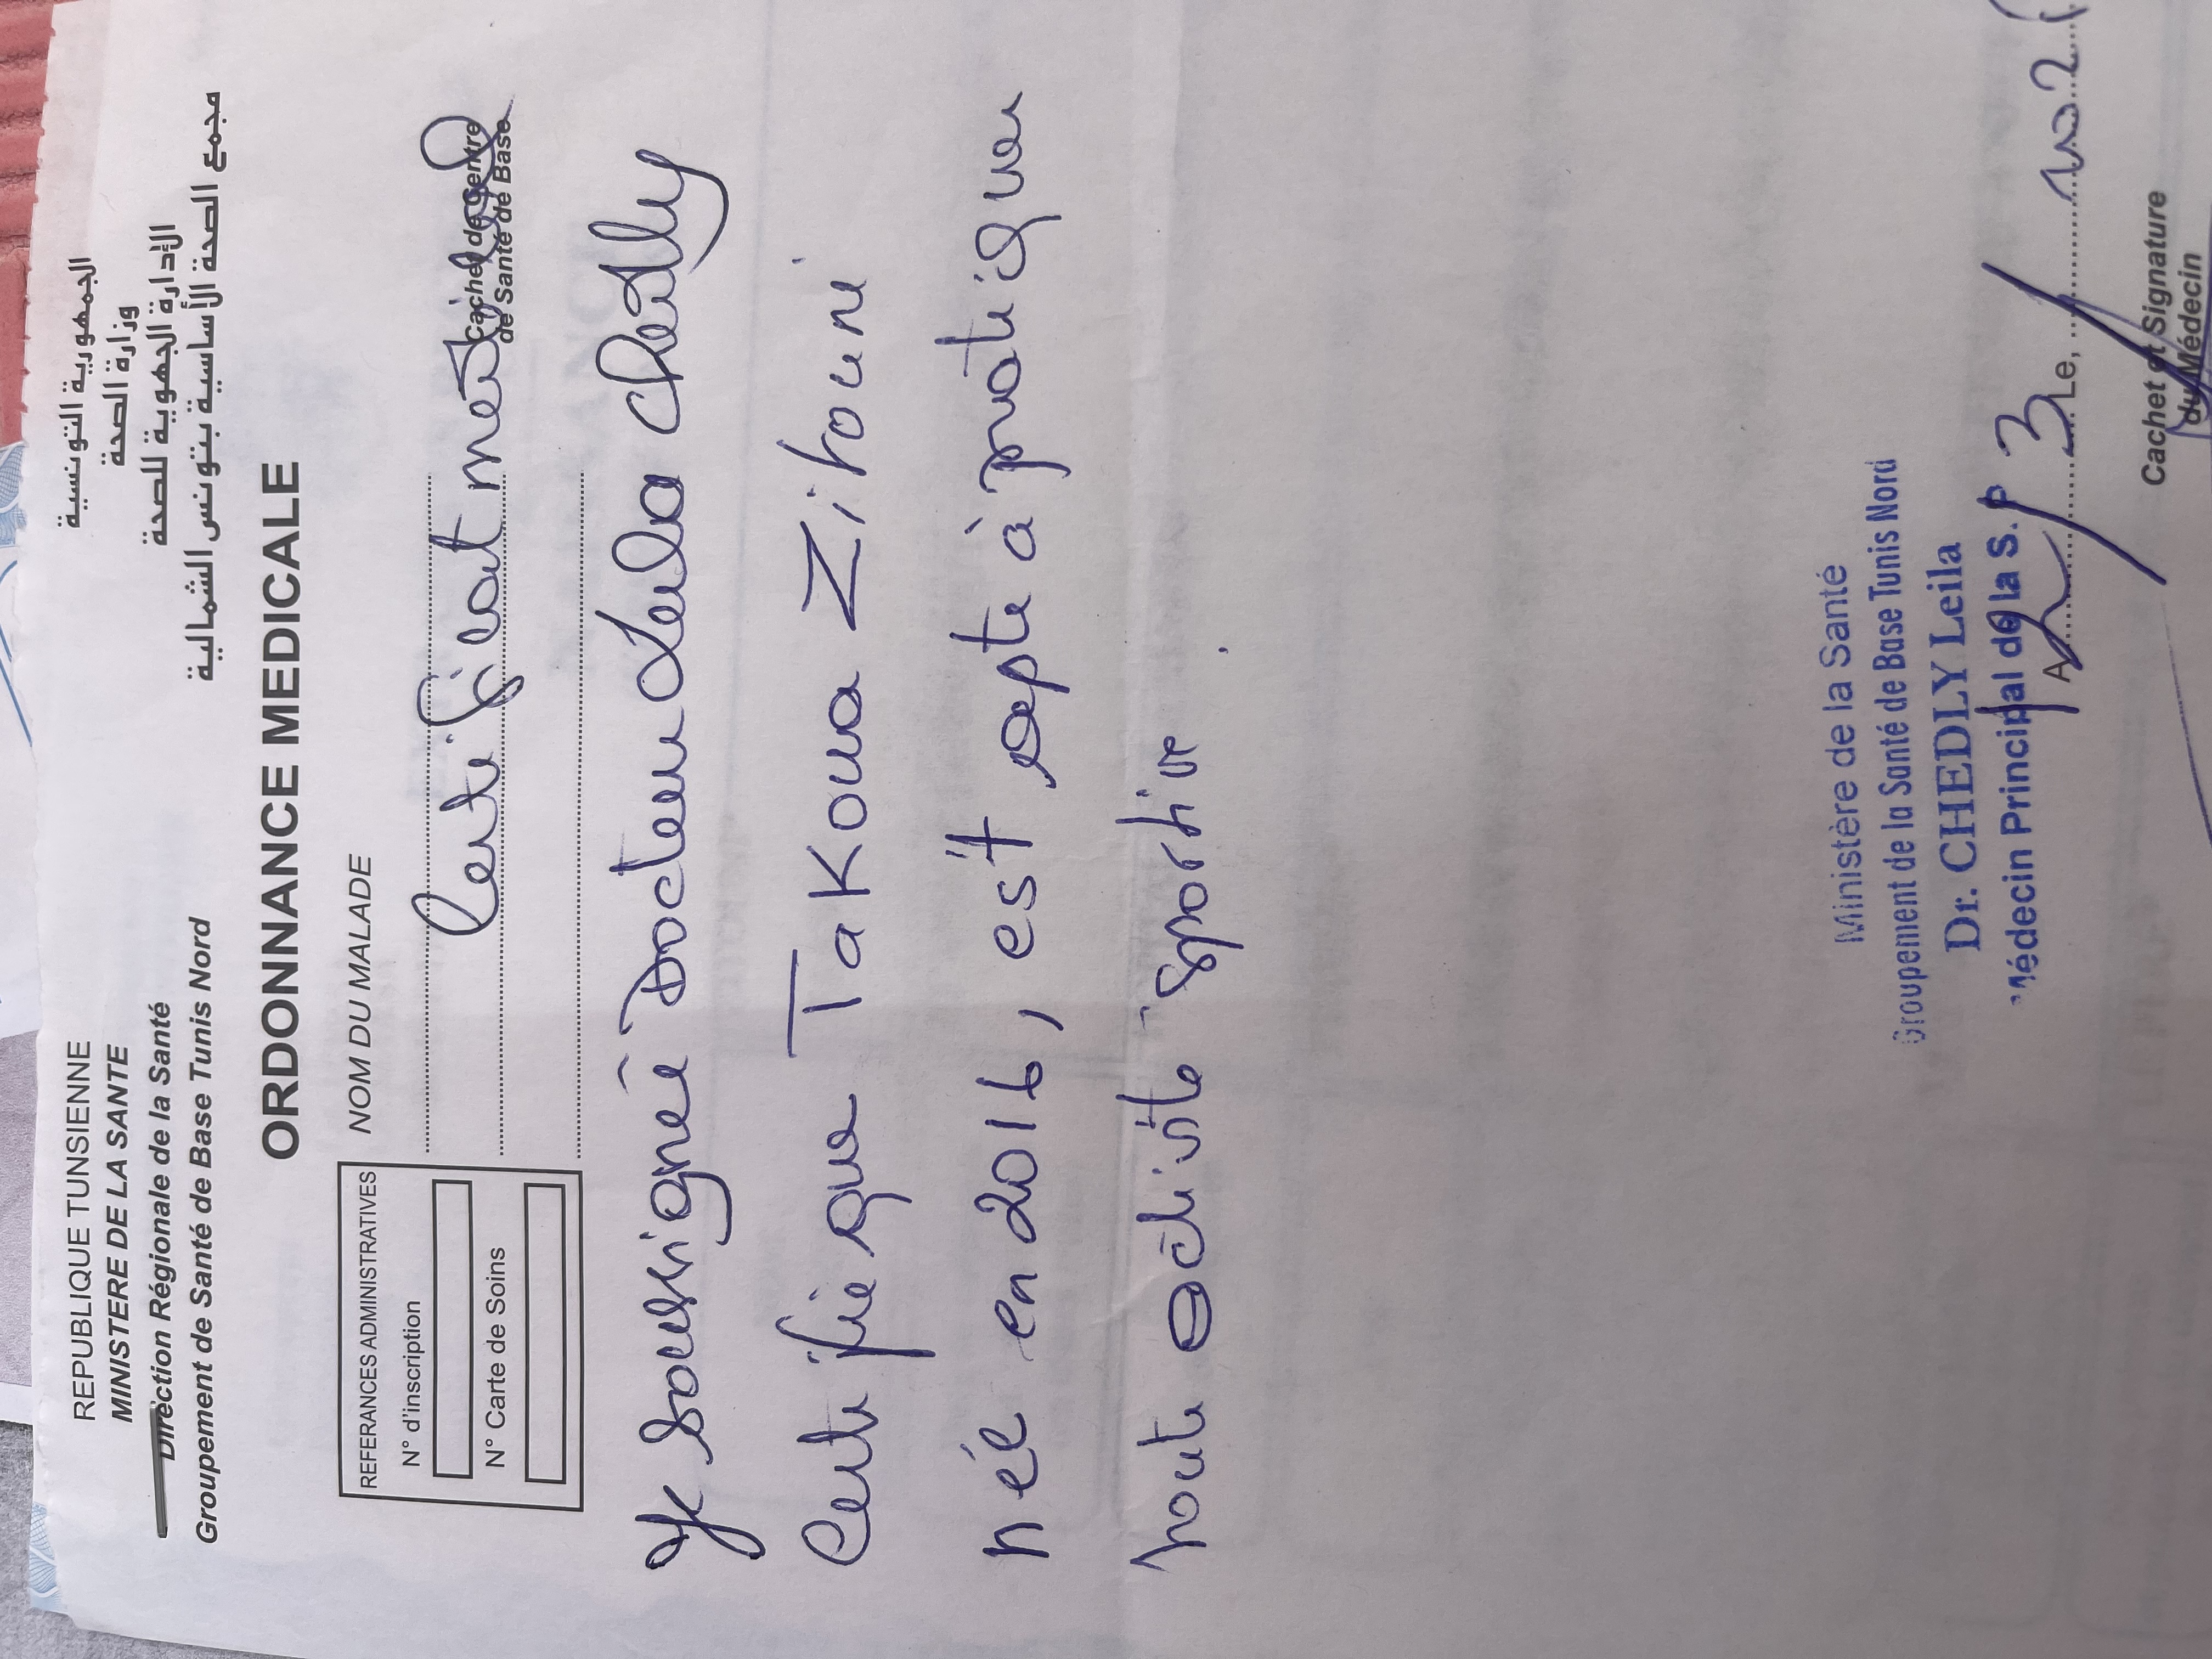 REPUBLIQUE TUNSIENNE
MINISTERE DE LA SANTE
Direction Régionale de la Santé
Groupement de Santé de Base Tunis Nord
الجمهورية التونسية
وزارة الصحة
الأدارة الجهوية للصحة
مجمع الصحة الأساسية بتونس الشمالية
ORDONNANCE MEDICALE
REFERANCES ADMINISTRATIVES
N° d'inscription
N° Carte de Soins
NOM DU MALADE
Certificat medical
Cachet de Centre
de Santé de Base
Je soussigné Docteur Leila Chedly
Certifie que Takoua Zitouni
née en 2016, est apte à pratiquer
toute activité sportive.
Ministère de la Santé
Groupement de la Santé de Base Tunis Nord
Dr. CHEDLY Leila
Médecin Principal de la S. P
A Le,
Cachet et Signature
du Médecin